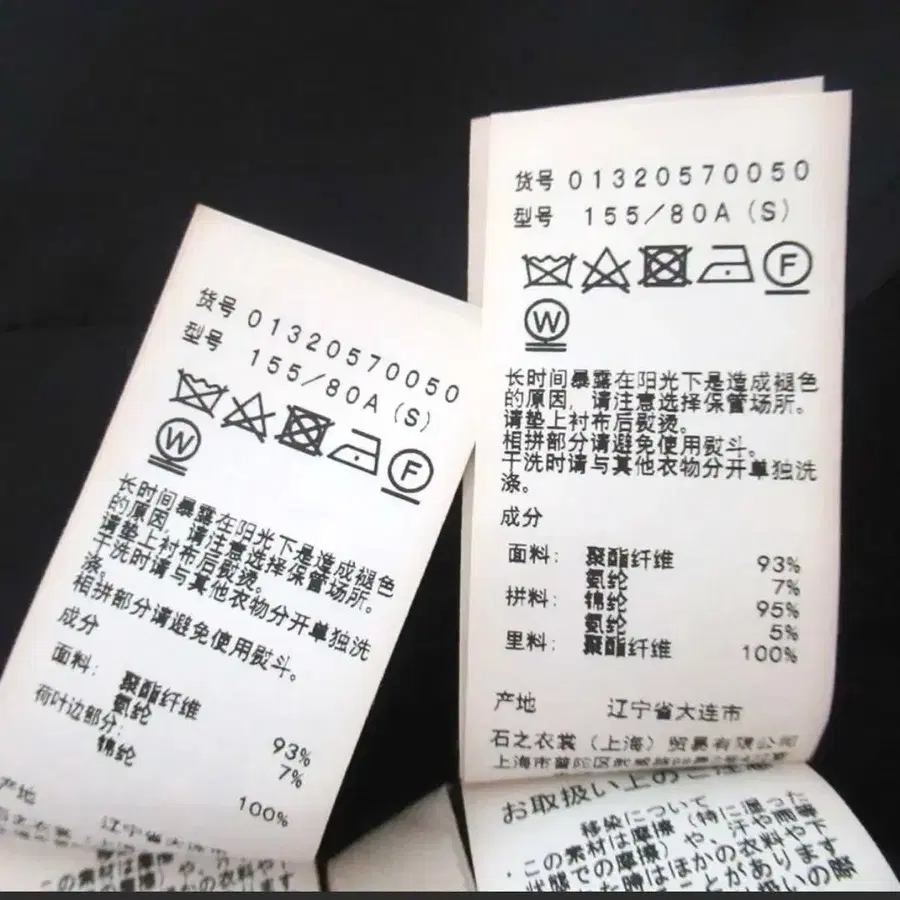 货号 01320570050
型号 155/80A(S)
W
F
长时间暴露在阳光下是造成褪色
的原因，请注意选择保管场所。
请垫上衬布后熨烫。
干洗时请与其他衣物分开单独洗
涤。
相拼部分请避免使用熨斗。
成分
面料: 聚酯纤维 93%
氨纶 7%
荷叶边部分:
锦纶 100%
产地 辽宁省大连市
この素材は摩擦
货号 01320570050
型号 155/80A(S)
F
W
长时间暴露在阳光下是造成褪色
的原因，请注意选择保管场所。
请垫上衬布后熨烫。
相拼部分请避免使用熨斗。
干洗时请与其他衣物分开单独洗
涤。
成分
面料: 聚酯纤维 93%
氨纶 7%
拼料: 锦纶 95%
氨纶 5%
里料: 聚酯纤维 100%
产地 辽宁省大连市
石之衣裳（上海）贸易有限公司
上海市普陀区
お取扱い上のご注意
移染について
・この素材は摩擦（特に湿った
状態での摩擦）や、汗や雨等
た時はほかの衣料や下
ことがあります
扱いの際